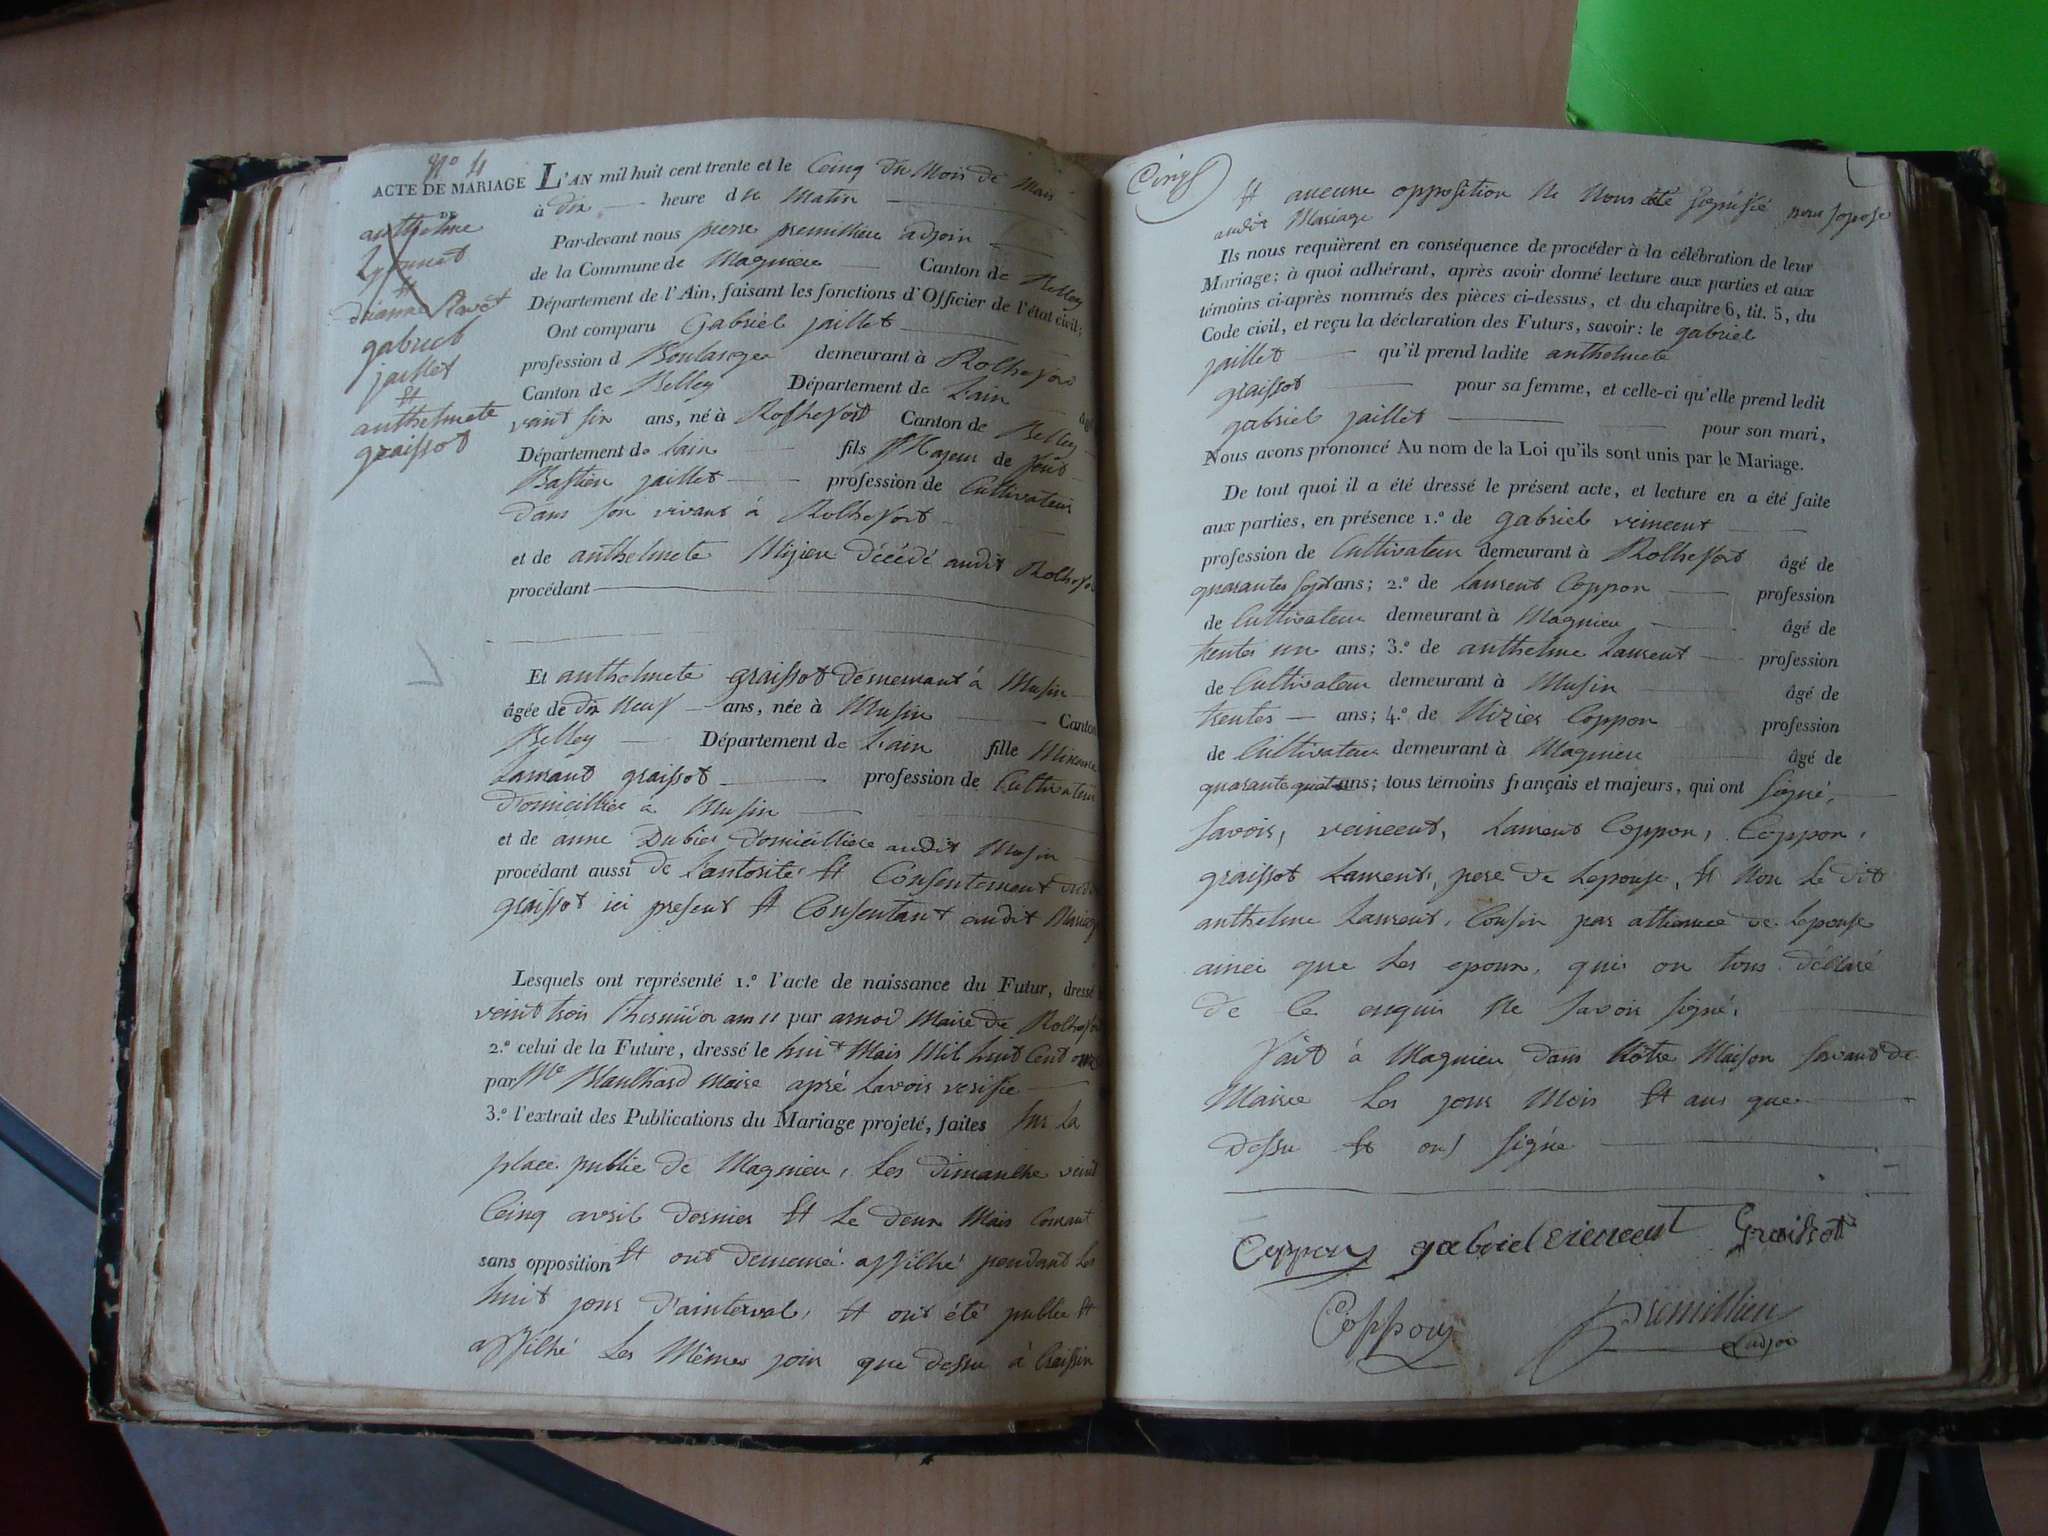 N° 4
ACTE DE MARIAGE
DE
anthelme
et
gabriel
jaillet
et
anthelmete
graissot
L'AN mil huit cent trente et le Cinq du Mois de Mais
à dix heure du Matin
Par-devant nous pierre premillieu adjoin
de la Commune de Magnieu Canton de Belley
Département de l'Ain, faisant les fonctions d'Officier de l'état civil;
Ont comparu Gabriel jaillet
profession d Boulanger demeurant à Rolhefort
Canton de Belley Département de Lain âgé
vaint six ans, né à Rolhefort Canton de Belley
Département de Lain fils Majeur de feut
Bastien jaillet profession de Cultivateur
dans son vivant à Rolhefort
et de anthelmete Mizieu décédé audit Rolhefor
procédant
Et anthelmete graissot demeurant à Musin
âgée de dix Neuf ans, née à Musin Canton
Belley Département de Lain fille Mineure
Laurant graissot profession de Cultivateur
domicillier à Musin
et de anne Dubier domicilliere audit Musin
procédant aussi de Lautosité et Consentement dudi
graissot ici present et Consentant audit Mariage
Lesquels ont représenté 1.° l'acte de naissance du Futur, dressé
veint trois Thermidor an 11 par Maire de Rolhefor
2.° celui de la Future, dressé le huit Mais Mil huit Cent onze
par Mr Maire apré Lavoir verifier
3.° l'extrait des Publications du Mariage projeté, faites sur La
place public de Magnieu, Les dimanche veint
Cinq avril dernier et Le deux Mais Courant
sans opposition et ont demeuré affilhé pendant Les
huit jour d'ainterval, et ont été publier et
affilhé Les Mêmes join que dessu à
Cinq
et aucune opposition Ne Nous été signifié
audit Mariage
Ils nous requièrent en conséquence de procéder à la célébration de leur
Mariage; à quoi adhérant, après avoir donné lecture aux parties et aux
témoins ci-après nommés des pièces ci-dessus, et du chapitre 6, tit. 5, du
Code civil, et reçu la déclaration des Futurs, savoir: le gabriel
jaillet qu'il prend ladite anthelmete
graissot pour sa femme, et celle-ci qu'elle prend ledit
gabriel jaillet pour son mari,
Nous avons prononcé Au nom de la Loi qu'ils sont unis par le Mariage.
De tout quoi il a été dressé le présent acte, et lecture en a été faite
aux parties, en présence 1.° de gabriel veincent
profession de Cultivateur demeurant à Rolhefort âgé de
quarantes sept ans; 2.° de Laurent Coppon profession
de Cultivateur demeurant à Magnieu âgé de
trentes un ans; 3.° de anthelme Laurent profession
de Cultivateur demeurant à Musin âgé de
trentes ans; 4.° de Nizier Coppon profession
de Cultivateur demeurant à Magnieu âgé de
quarante quatre ans; tous témoins français et majeurs, qui ont signé,
savoir, veincent, Laurent Coppon, Coppon,
graissot Laurent, pere de Lepouse, et Non Le dit
anthelme Laurent, Cousin par alliance de Lepouse
ainci que Les epoux, qui on tous déclaré
de Ce enquis Ne savoir signé,
Fait à Magnieu dans Nôtre Maison servant de
Mairie Les jour Mois et ans que
dessu et ont signée
Coppon gabriel vieneent Graissot
Coppon premillieu
Ladjoo